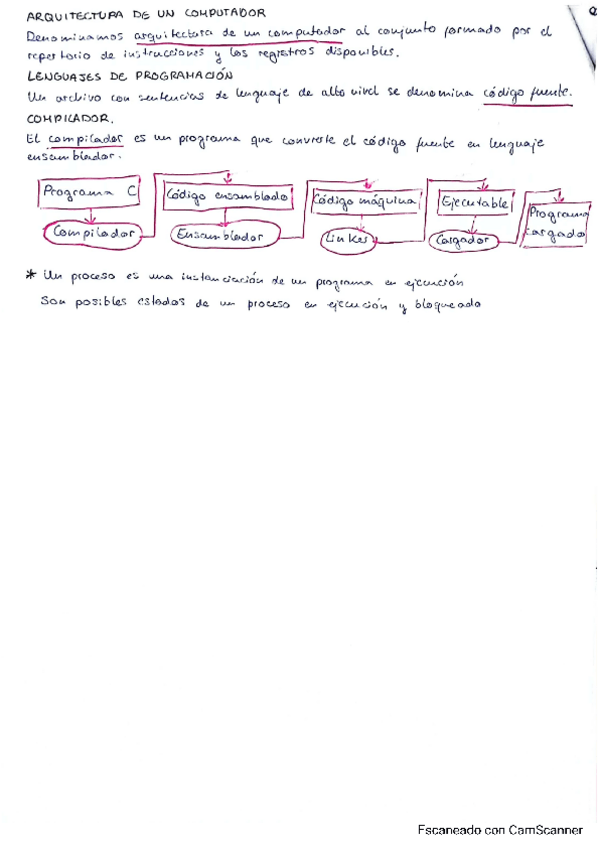 ARQUITECTURA DE UN COMPUTADOR
Denominamos arquitectura de un computador al conjunto formado por el
repertorio de instrucciones y los registros disponibles.
LENGUAJES DE PROGRAMACIÓN
Un archivo con sentencias de lenguaje de alto nivel se denomina código fuente.
COMPILADOR.
El compilador es un programa que convierte el código fuente en lenguaje
ensamblador.
Programa C
Código ensamblado
Código máquina
Ejecutable
Programa
cargado
Compilador
Ensamblador
Linker
Cargador
* Un proceso es una instanciación de un programa en ejecución
Son posibles estados de un proceso en ejecución y bloqueado
Escaneado con CamScanner